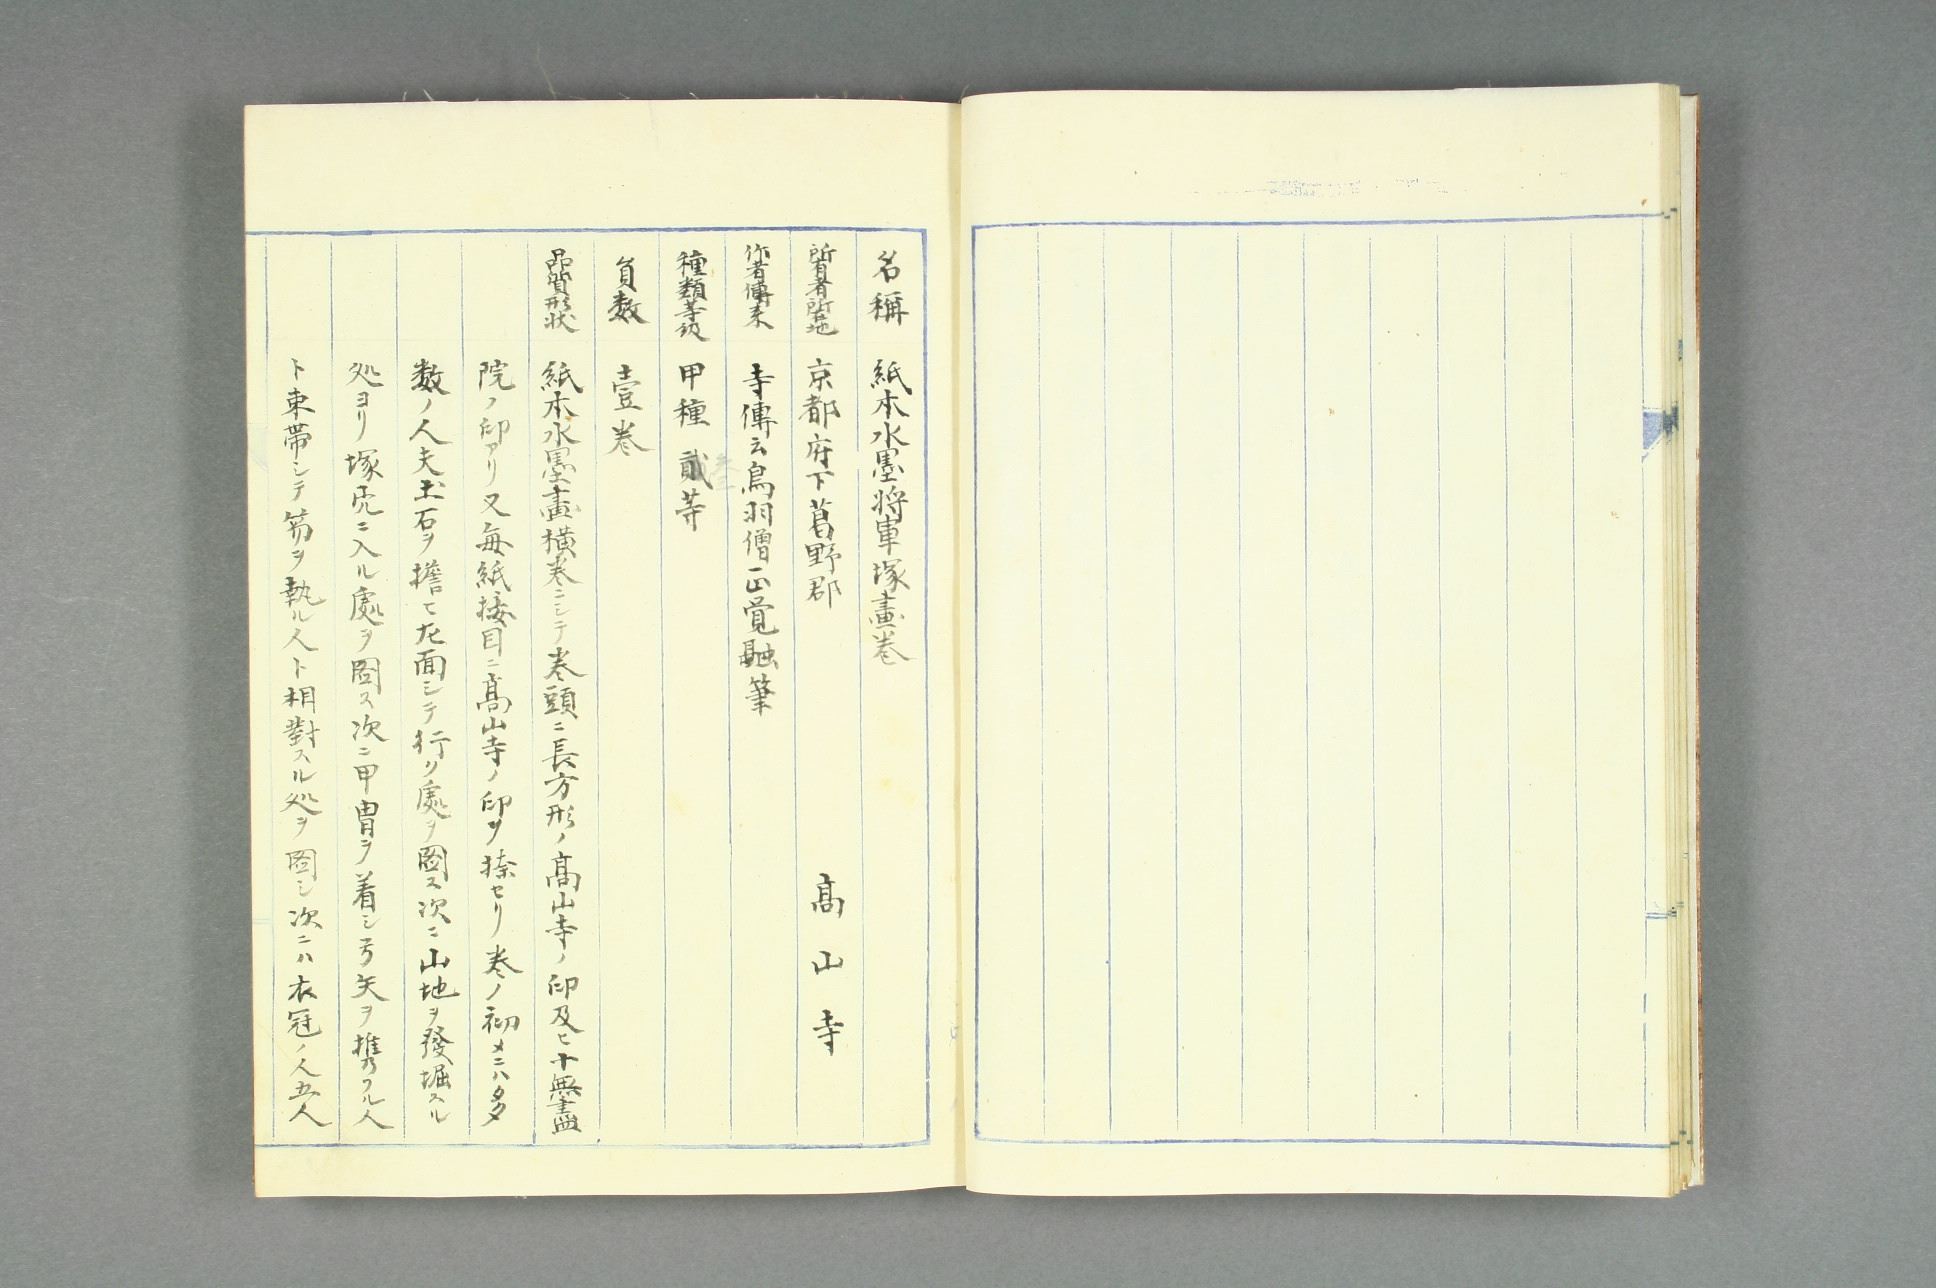 名稱 紙本水墨将軍塚畫巻
所有者所在地 京都府下葛野郡 高山寺
作者傳来 寺傳云鳥羽僧正覚融筆
種類等級 甲種 貮等
員数 壹巻
品質形状 紙本水墨畫横巻ニシテ巻頭ニ長方形ノ高山寺ノ印及ヒ十無盡
院ノ印アリ又毎紙接目ニ高山寺ノ印ヲ捺セリ巻ノ初メニハ多
数ノ人夫土石ヲ擔ヒ左面シテ行ク處ヲ圖ス次ニ山地ヲ發堀スル
処ヨリ塚穴ニ入ル處ヲ圖ス次ニ甲冑ヲ着シ弓矢ヲ携フル人
ト束帯シテ笏ヲ執ル人ト相對スル処ヲ圖シ次ニハ衣冠ノ人五人